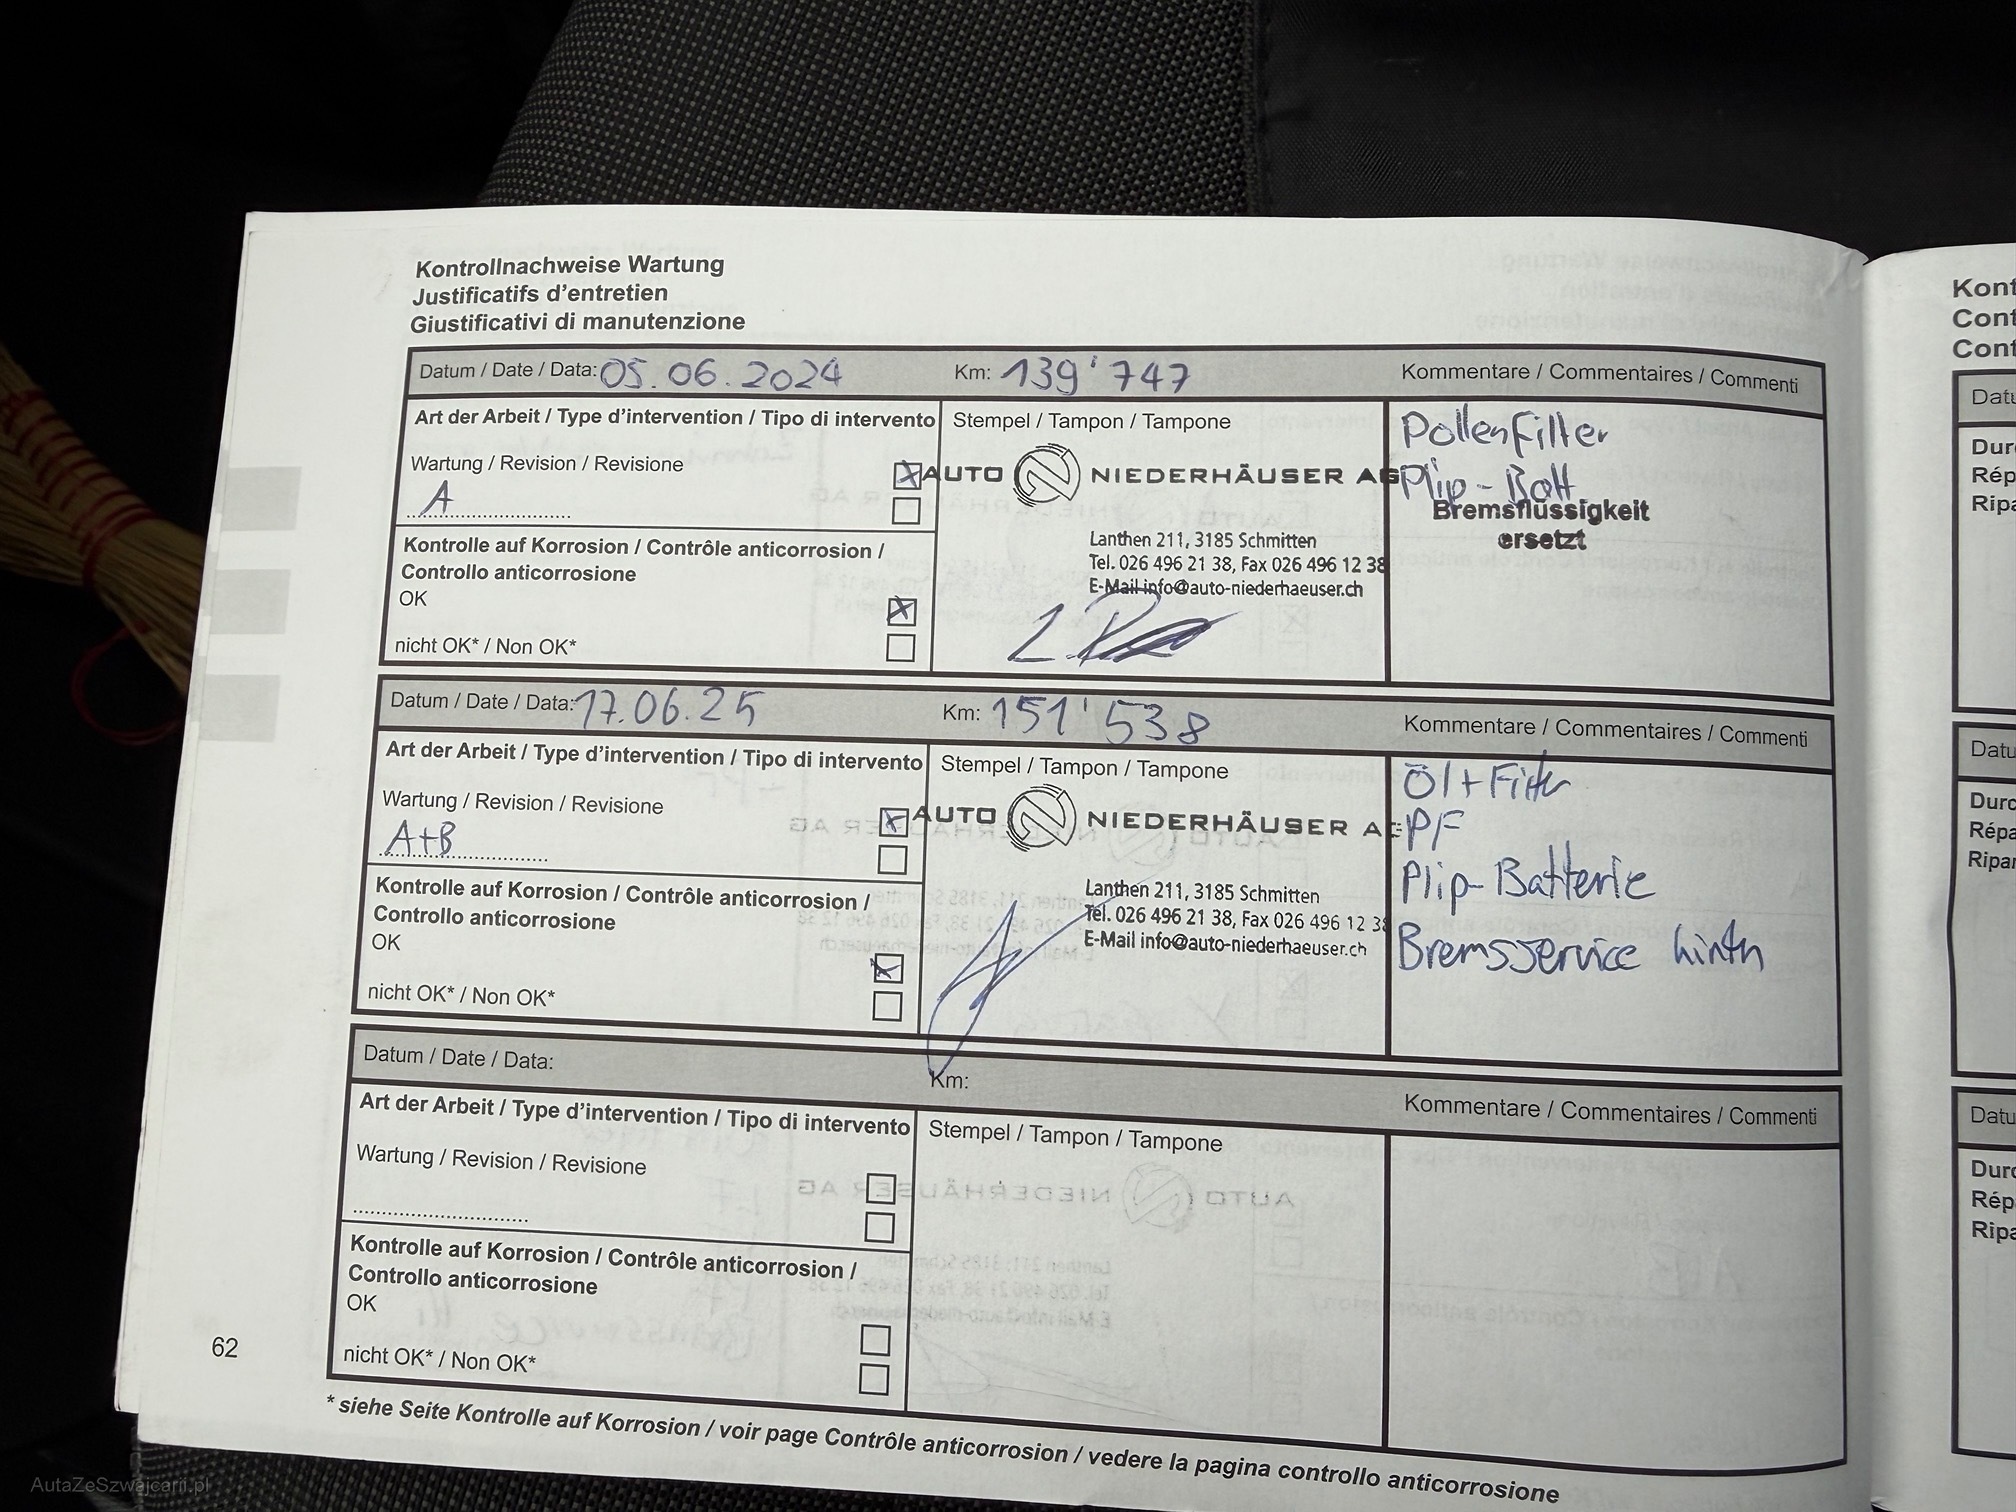 Kontrollnachweise Wartung
Justificatifs d'entretien
Giustificativi di manutenzione
Datum / Date / Data: 05.06.2024 Km: 139'747 Kommentare / Commentaires / Commenti
Art der Arbeit / Type d'intervention / Tipo di intervento
Stempel / Tampon / Tampone
Wartung / Revision / Revisione
A
AUTO NIEDERHÄUSER AG
Lanthen 211, 3185 Schmitten
Tel. 026 496 21 38, Fax 026 496 12 38
E-Mail info@auto-niederhaeuser.ch
Pollenfilter
Plip-Batt
Bremsflüssigkeit
ersetzt
Kontrolle auf Korrosion / Contrôle anticorrosion /
Controllo anticorrosione
OK
nicht OK* / Non OK*
Datum / Date / Data: 17.06.25 Km: 151'538 Kommentare / Commentaires / Commenti
Art der Arbeit / Type d'intervention / Tipo di intervento
Stempel / Tampon / Tampone
Wartung / Revision / Revisione
A+B
AUTO NIEDERHÄUSER AG
Lanthen 211, 3185 Schmitten
Tel. 026 496 21 38, Fax 026 496 12 38
E-Mail info@auto-niederhaeuser.ch
Öl + Filter
PF
Plip-Batterie
Bremsservice hinten
Kontrolle auf Korrosion / Contrôle anticorrosion /
Controllo anticorrosione
OK
nicht OK* / Non OK*
Datum / Date / Data: Km: Kommentare / Commentaires / Commenti
Art der Arbeit / Type d'intervention / Tipo di intervento
Stempel / Tampon / Tampone
Wartung / Revision / Revisione
Kontrolle auf Korrosion / Contrôle anticorrosion /
Controllo anticorrosione
OK
nicht OK* / Non OK*
62
* siehe Seite Kontrolle auf Korrosion / voir page Contrôle anticorrosion / vedere la pagina controllo anticorrosione
AutaZeSzwajcarii.pl